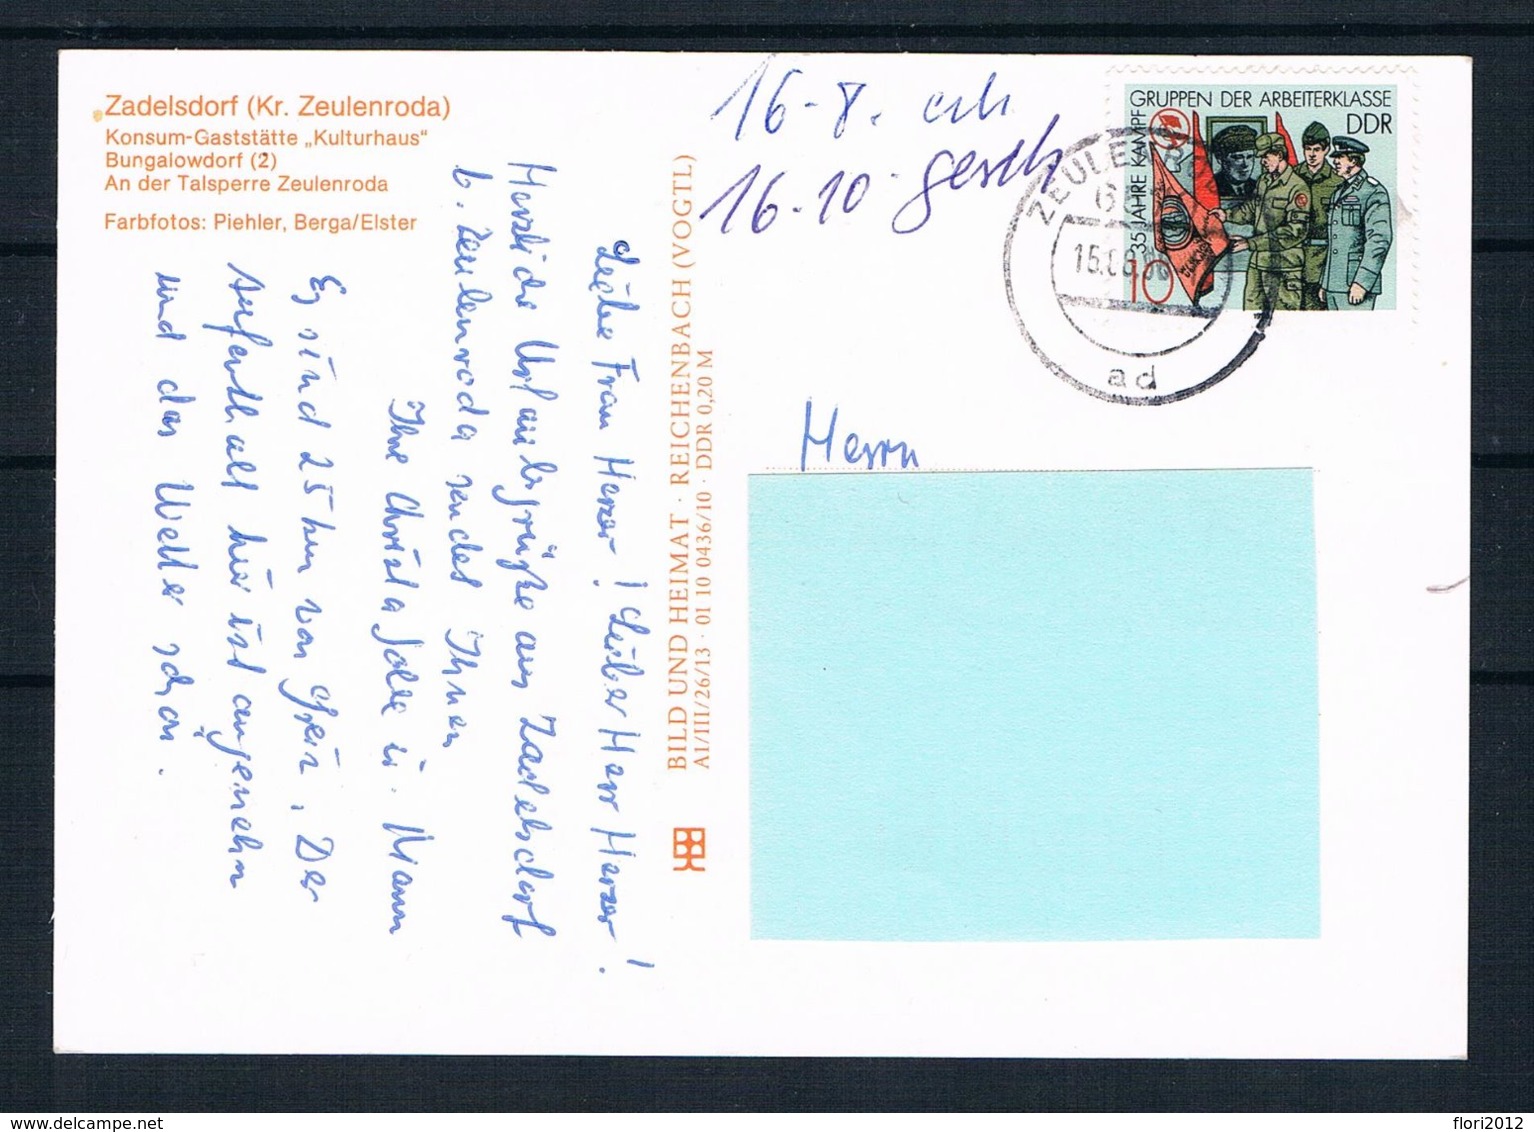 Zadelsdorf (Kr. Zeulenroda)
Konsum-Gaststätte „Kulturhaus"
Bungalowdorf (2)
An der Talsperre Zeulenroda
Farbfotos: Piehler, Berga/Elster
16-8. erh
16-10 gesch
35 JAHRE KAMPF
GRUPPEN DER ARBEITERKLASSE
DDR
10
ad
Liebe Frau Herzer! Lieber Herr Herzer!
Herzliche Urlaubsgrüße aus Zadelsdorf
b. Zeulenroda sendet Ihnen
Ihre Christa u. Mann
Es sind 25 km von Greiz. Der
Aufenthalt hier ist angenehm
und das Wetter schön.
BILD UND HEIMAT · REICHENBACH (VOGTL)
A1/III/26/13 · 01 10 0436/10 · DDR 0,20 M
Herrn
flori2012